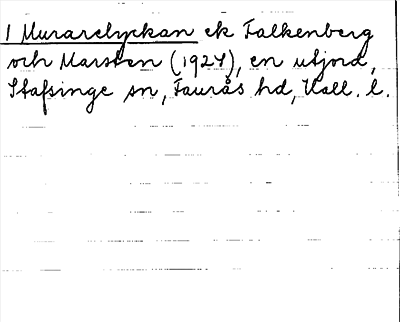 1 Murarelyckan ek Falkenberg
och Marsten (1924), en utjord,
Stafsinge sn, Faurås hd, Hall. l.